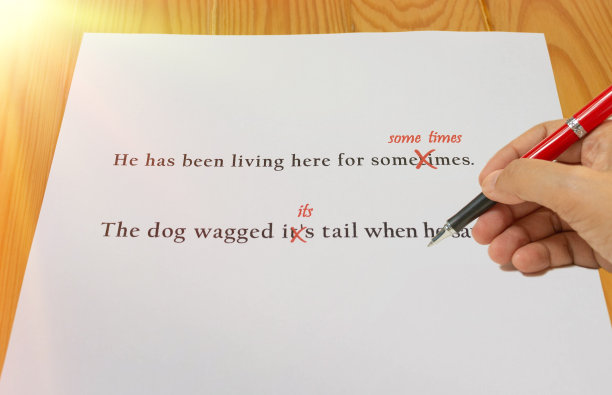 some times
He has been living here for sometimes.
its
The dog wagged it's tail when he